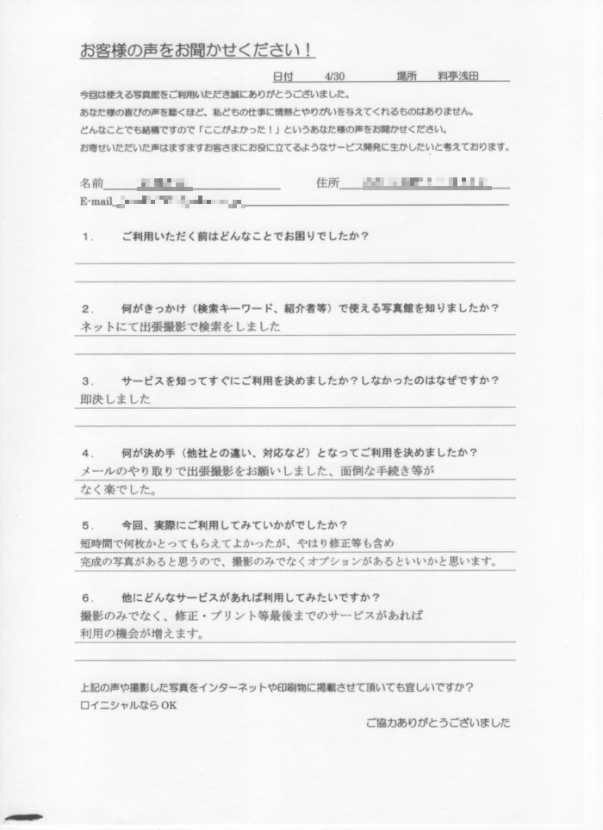 お客様の声をお聞かせください！
日付 4/30 場所 料亭浅田
今回は使える写真館をご利用いただき誠にありがとうございました。
あなた様の喜びの声を聴くほど、私どもの仕事に情熱とやりがいを与えてくれるものはありません。
どんなことでも結構ですので「ここがよかった！」というあなた様の声をお聞かせください。
お寄せいただいた声はますますお客さまにお役に立てるようなサービス開発に生かしたいと考えております。
名前 住所
E-mail
１． ご利用いただく前はどんなことでお困りでしたか？
２． 何がきっかけ（検索キーワード、紹介者等）で使える写真館を知りましたか？
ネットにて出張撮影で検索をしました
３． サービスを知ってすぐにご利用を決めましたか？しなかったのはなぜですか？
即決しました
４． 何が決め手（他社との違い、対応など）となってご利用を決めましたか？
メールのやり取りで出張撮影をお願いしました、面倒な手続き等が
なく楽でした。
５． 今回、実際にご利用してみていかがでしたか？
短時間で何枚かとってもらえてよかったが、やはり修正等も含め
完成の写真があると思うので、撮影のみでなくオプションがあるといいかと思います。
６． 他にどんなサービスがあれば利用してみたいですか？
撮影のみでなく、修正・プリント等最後までのサービスがあれば
利用の機会が増えます。
上記の声や撮影した写真をインターネットや印刷物に掲載させて頂いても宜しいですか？
口イニシャルなら OK
ご協力ありがとうございました